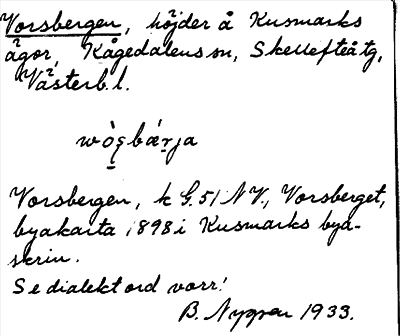 Vorsbergen, höjder å Kusmarks
ägor, Kågedalens sn, Skellefteå tg,
Västerb. l.
Vorsbergen, k G. 51 N V., Vorsberget,
byakarta 1898 i Kusmarks bya-
skrin.
Se dialektord vorr!
B. Nygren 1933.